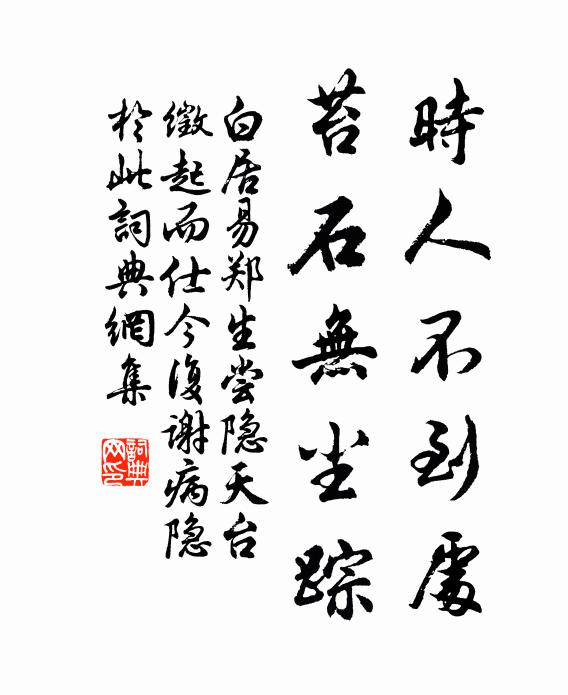 時人不到處
苔石無尘踪
白居易郑生尝隐天台
徵起而仕今復谢病隐
於此詞典網集
詞典
网印